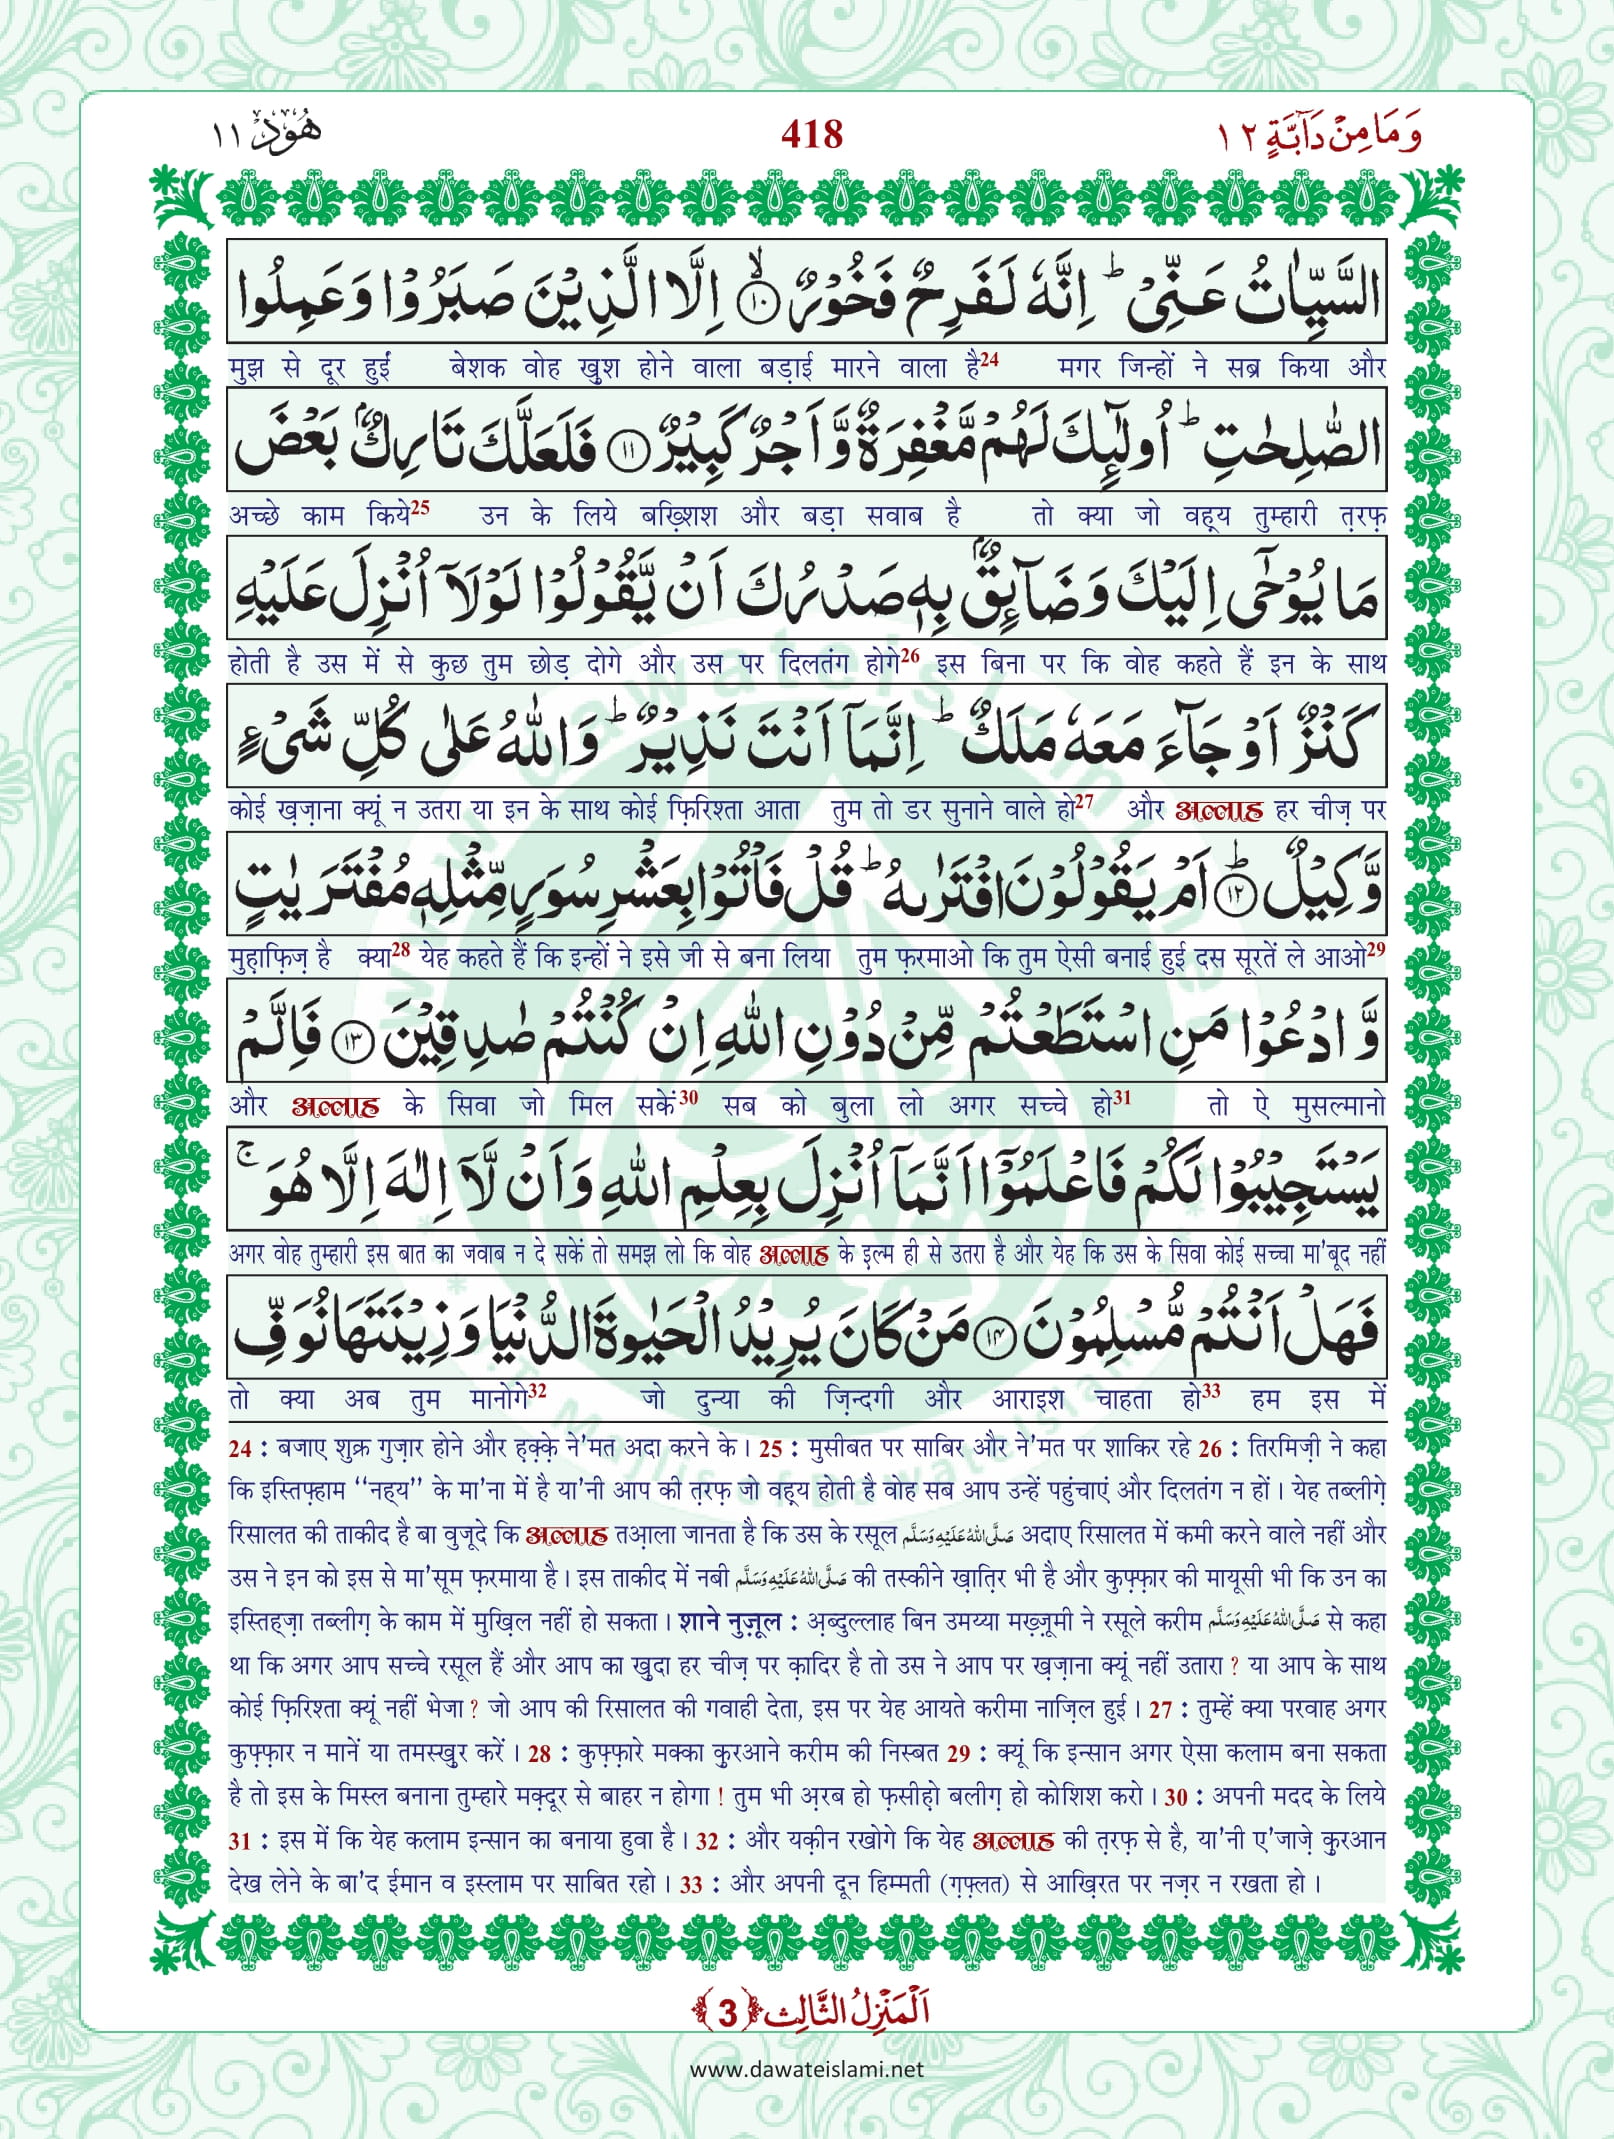 وَمَا مِنْ دَآبَّةٍ ١٢
418
هُوْد ١١
السَّيِّاٰتُ عَنِّیْ ؕ اِنَّهٗ لَفَرِحٌ فَخُوْرٌ ۙ﴿۱۰﴾ اِلَّا الَّذِیْنَ صَبَرُوْا وَعَمِلُوا
मुझ से दूर हुईं बेशक वोह ख़ुश होने वाला बड़ाई मारने वाला है24 मगर जिन्हों ने सब्र किया और
الصّٰلِحٰتِ ؕ اُولٰٓئِكَ لَهُمْ مَّغْفِرَةٌ وَّاَجْرٌ كَبِیْرٌ ﴿۱۱﴾ فَلَعَلَّكَ تَارِكٌۢ بَعْضَ
अच्छे काम किये25 उन के लिये बख़्शिश और बड़ा सवाब है तो क्या जो वह़्य तुम्हारी त़रफ़
مَا یُوْحٰۤی اِلَیْكَ وَضَآئِقٌۢ بِهٖ صَدْرُكَ اَنْ یَّقُوْلُوْا لَوْلَاۤ اُنْزِلَ عَلَیْهِ
होती है उस में से कुछ तुम छोड़ दोगे और उस पर दिलतंग होगे26 इस बिना पर कि वोह कहते हैं इन के साथ
كَنْزٌ اَوْ جَآءَ مَعَهٗ مَلَكٌ ؕ اِنَّمَاۤ اَنْتَ نَذِیْرٌ ؕ وَاللّٰهُ عَلٰی كُلِّ شَیْءٍ
कोई ख़ज़ाना क्यूं न उतरा या इन के साथ कोई फ़िरिश्ता आता तुम तो डर सुनाने वाले हो27 और अल्लाह हर चीज़ पर
وَّكِیْلٌ ؕ﴿۱۲﴾ اَمْ یَقُوْلُوْنَ افْتَرٰىهُ ؕ قُلْ فَاْتُوْا بِعَشْرِ سُوَرٍ مِّثْلِهٖ مُفْتَرَیٰتٍ
मुह़ाफ़िज़ है क्या28 येह कहते हैं कि इन्हों ने इसे जी से बना लिया तुम फ़रमाओ कि तुम ऐसी बनाई हुई दस सूरतें ले आओ29
وَّادْعُوْا مَنِ اسْتَطَعْتُمْ مِّنْ دُوْنِ اللّٰهِ اِنْ كُنْتُمْ صٰدِقِیْنَ ﴿۱۳﴾ فَاِلَّمْ
और अल्लाह के सिवा जो मिल सकें30 सब को बुला लो अगर सच्चे हो31 तो ऐ मुसल्मानो
یَسْتَجِیْبُوْا لَكُمْ فَاعْلَمُوْۤا اَنَّمَاۤ اُنْزِلَ بِعِلْمِ اللّٰهِ وَاَنْ لَّاۤ اِلٰهَ اِلَّا هُوَ ۚ
अगर वोह तुम्हारी इस बात का जवाब न दे सकें तो समझ लो कि वोह अल्लाह के इ़ल्म ही से उतरा है और येह कि उस के सिवा कोई सच्चा मा'बूद नहीं
فَهَلْ اَنْتُمْ مُّسْلِمُوْنَ ﴿۱۴﴾ مَنْ كَانَ یُرِیْدُ الْحَیٰوةَ الدُّنْیَا وَزِیْنَتَهَا نُوَفِّ
तो क्या अब तुम मानोगे32 जो दुन्या की ज़िन्दगी और आराइश चाहता हो33 हम इस में
24 : बजाए शुक्र गुज़ार होने और ह़क़्क़े ने'मत अदा करने के। 25 : मुसीबत पर साबिर और ने'मत पर शाकिर रहे 26 : तिरमिज़ी ने कहा
कि इस्तिफ़्हाम ‘‘नह्य’’ के मा'ना में है या'नी आप की त़रफ़ जो वह़्य होती है वोह सब आप उन्हें पहुंचाएं और दिलतंग न हों। येह तब्लीग़े
रिसालत की ताकीद है बा वुजूदे कि अल्लाह तआ़ला जानता है कि उस के रसूल صَلَّى اللهُ عَلَيْهِ وَسَلَّم अदाए रिसालत में कमी करने वाले नहीं और
उस ने इन को इस से मा'सूम फ़रमाया है। इस ताकीद में नबी صَلَّى اللهُ عَلَيْهِ وَسَلَّم की तस्कीने ख़ात़िर भी है और कुफ़्फ़ार की मायूसी भी कि उन का
इस्तिह्ज़ा तब्लीग़ के काम में मुख़िल नहीं हो सकता। शाने नुज़ूल : अ़ब्दुल्लाह बिन उमय्या मख़्ज़ूमी ने रसूले करीम صَلَّى اللهُ عَلَيْهِ وَسَلَّم से कहा
था कि अगर आप सच्चे रसूल हैं और आप का ख़ुदा हर चीज़ पर क़ादिर है तो उस ने आप पर ख़ज़ाना क्यूं नहीं उतारा ? या आप के साथ
कोई फ़िरिश्ता क्यूं नहीं भेजा ? जो आप की रिसालत की गवाही देता, इस पर येह आयते करीमा नाज़िल हुई। 27 : तुम्हें क्या परवाह अगर
कुफ़्फ़ार न मानें या तमस्ख़ुर करें। 28 : कुफ़्फ़ारे मक्का क़ुरआने करीम की निस्बत 29 : क्यूं कि इन्सान अगर ऐसा कलाम बना सकता
है तो इस के मिस्ल बनाना तुम्हारे मक़्दूर से बाहर न होगा ! तुम भी अ़रब हो फ़सीह़ो बलीग़ हो कोशिश करो। 30 : अपनी मदद के लिये
31 : इस में कि येह कलाम इन्सान का बनाया हुवा है। 32 : और यक़ीन रखोगे कि येह अल्लाह की त़रफ़ से है, या'नी ए'जाज़े क़ुरआन
देख लेने के बा'द ईमान व इस्लाम पर साबित रहो। 33 : और अपनी दून हिम्मती (ग़फ़्लत) से आख़िरत पर नज़र न रखता हो।
اَلْمَنْزِلُ الثَّالِث ﴿3﴾
www.dawateislami.net